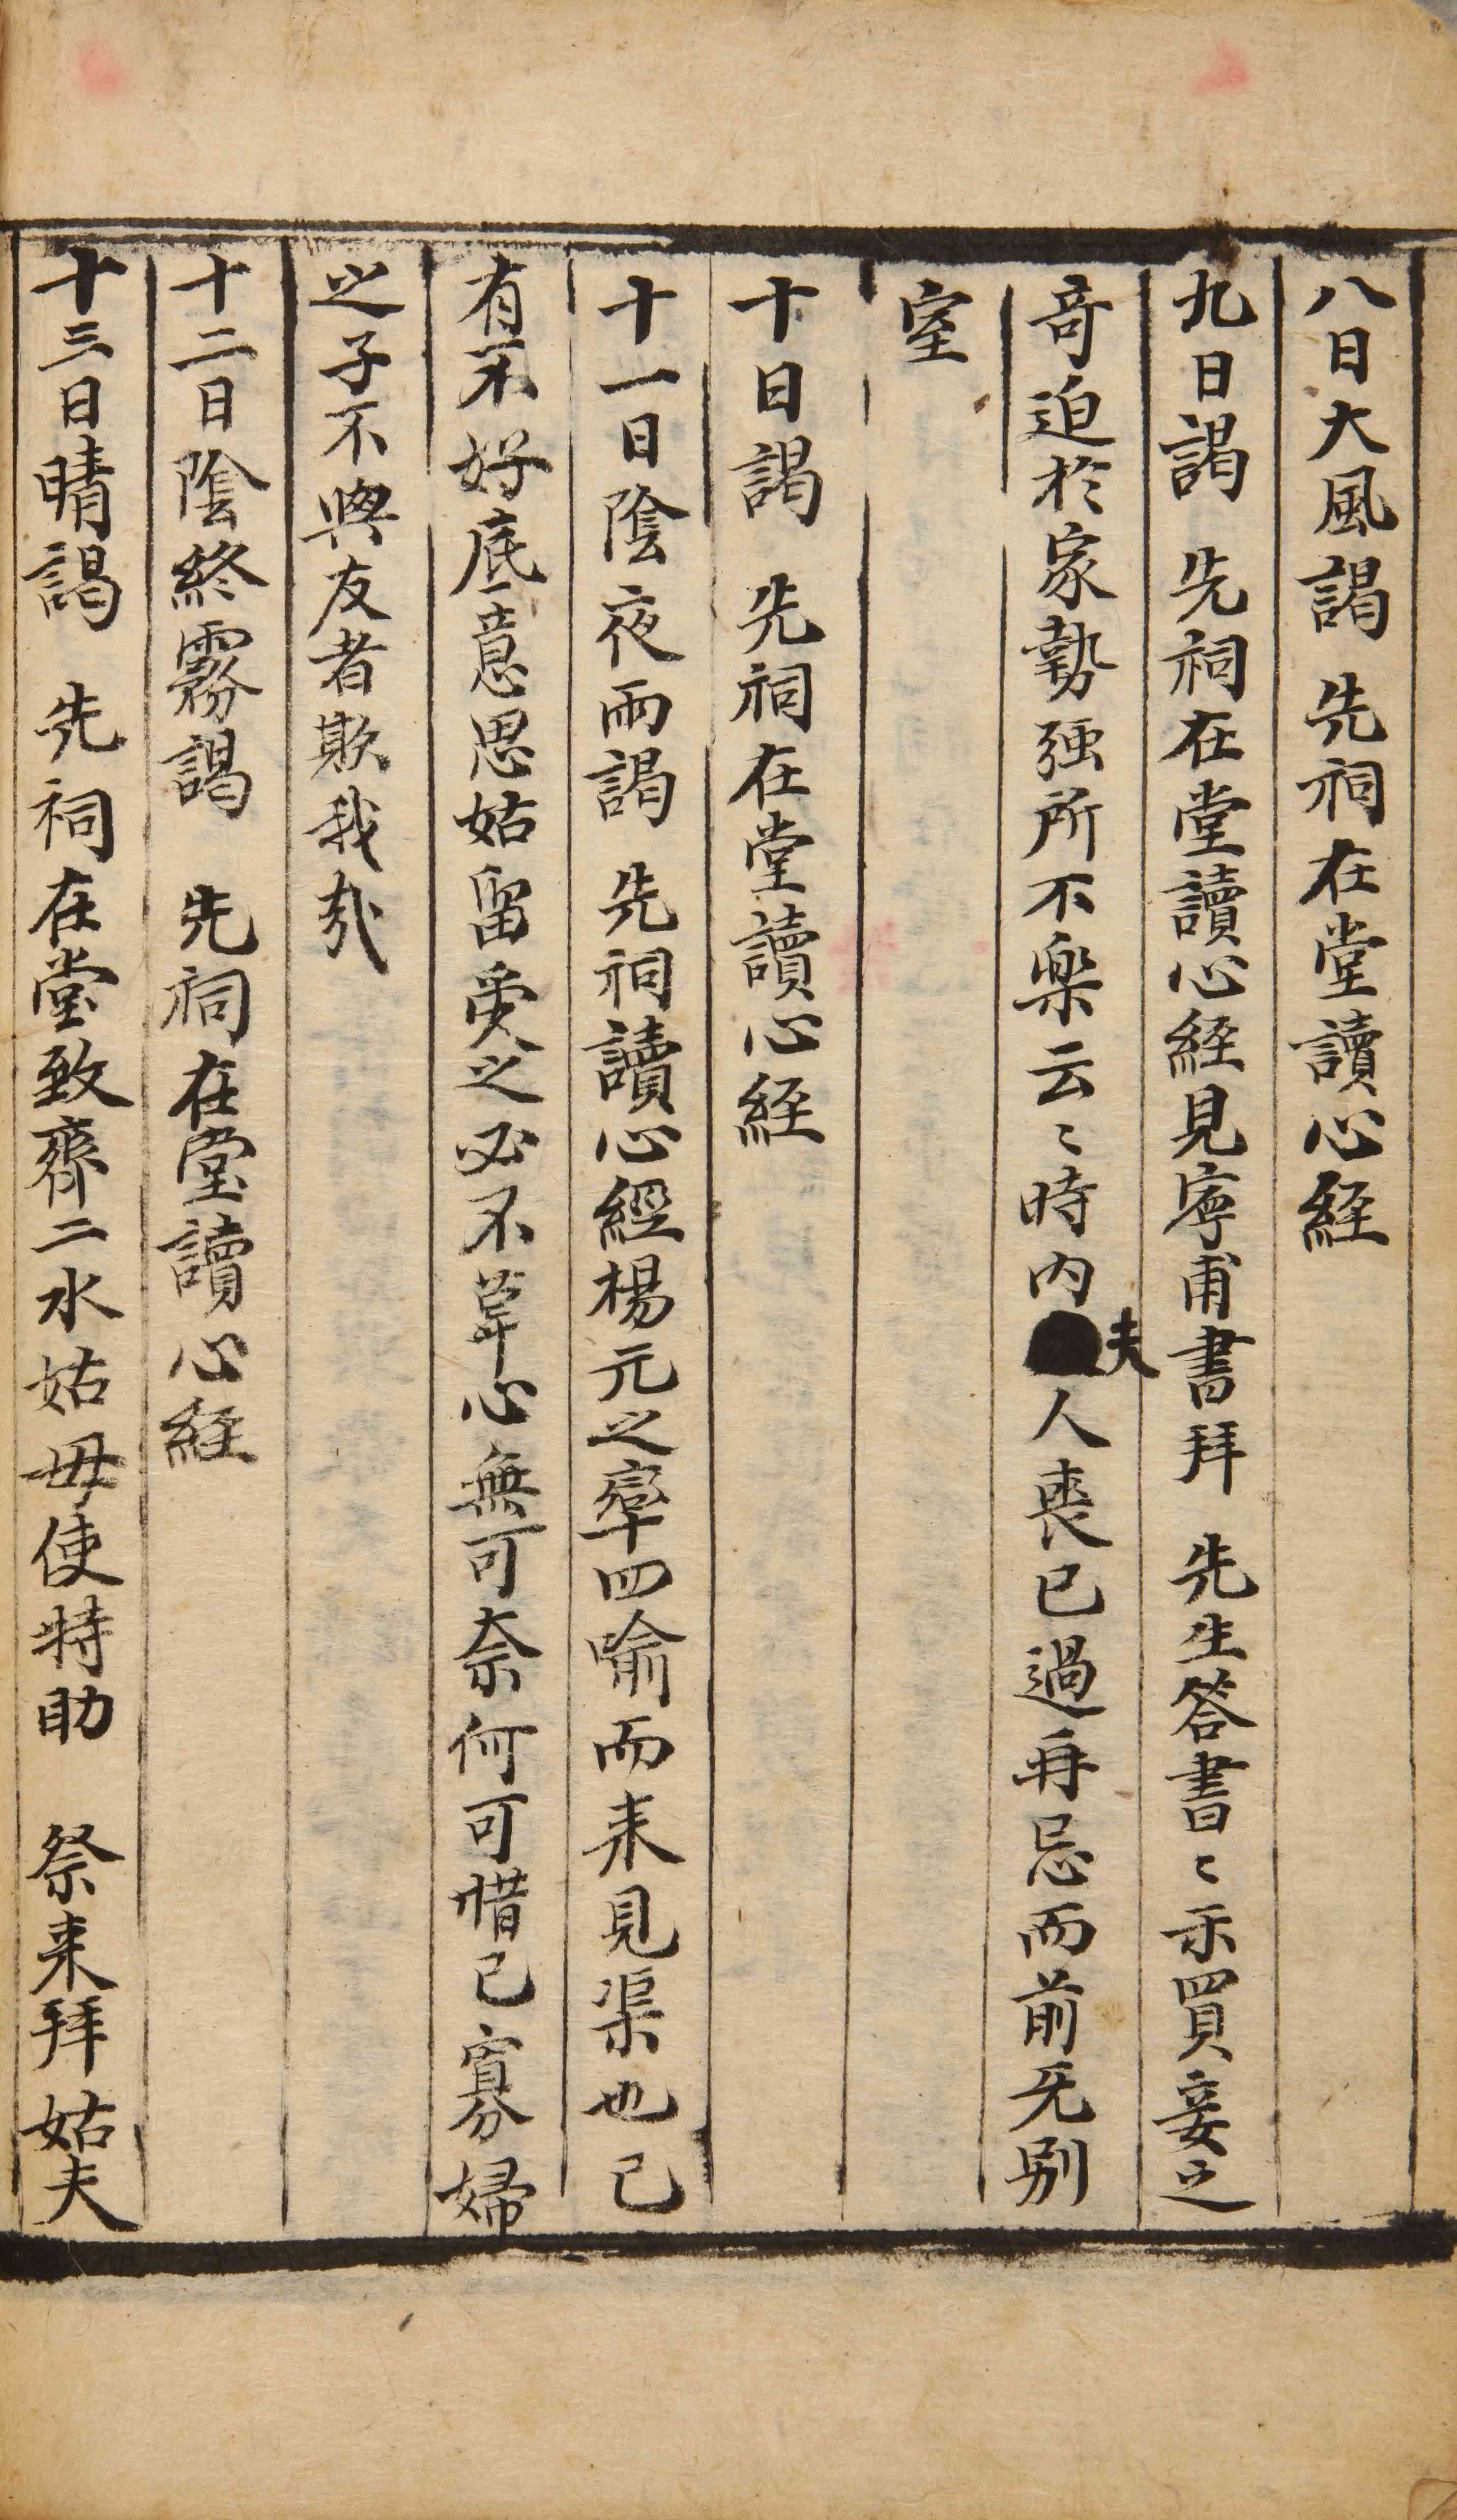 八日大風謁 先祠在堂讀心経
九日謁 先祠在堂讀心経見寧甫書拜 先生答書〻示買妾之
竒迫於家勢强所不楽云〻時内夫人喪已過再忌而前无别
室
十日謁 先祠在堂讀心経
十一日陰夜雨謁 先祠讀心經楊元之窂四喻而来見渠也已
有不好底意思姑留受之必不革心無可奈何可惜已寡婦
之子不與友者欺我㢤
十二日陰終霧謁 先祠在堂讀心経
十三日晴謁 先祠在堂致齊二水姑母使特助 祭来拜姑夫